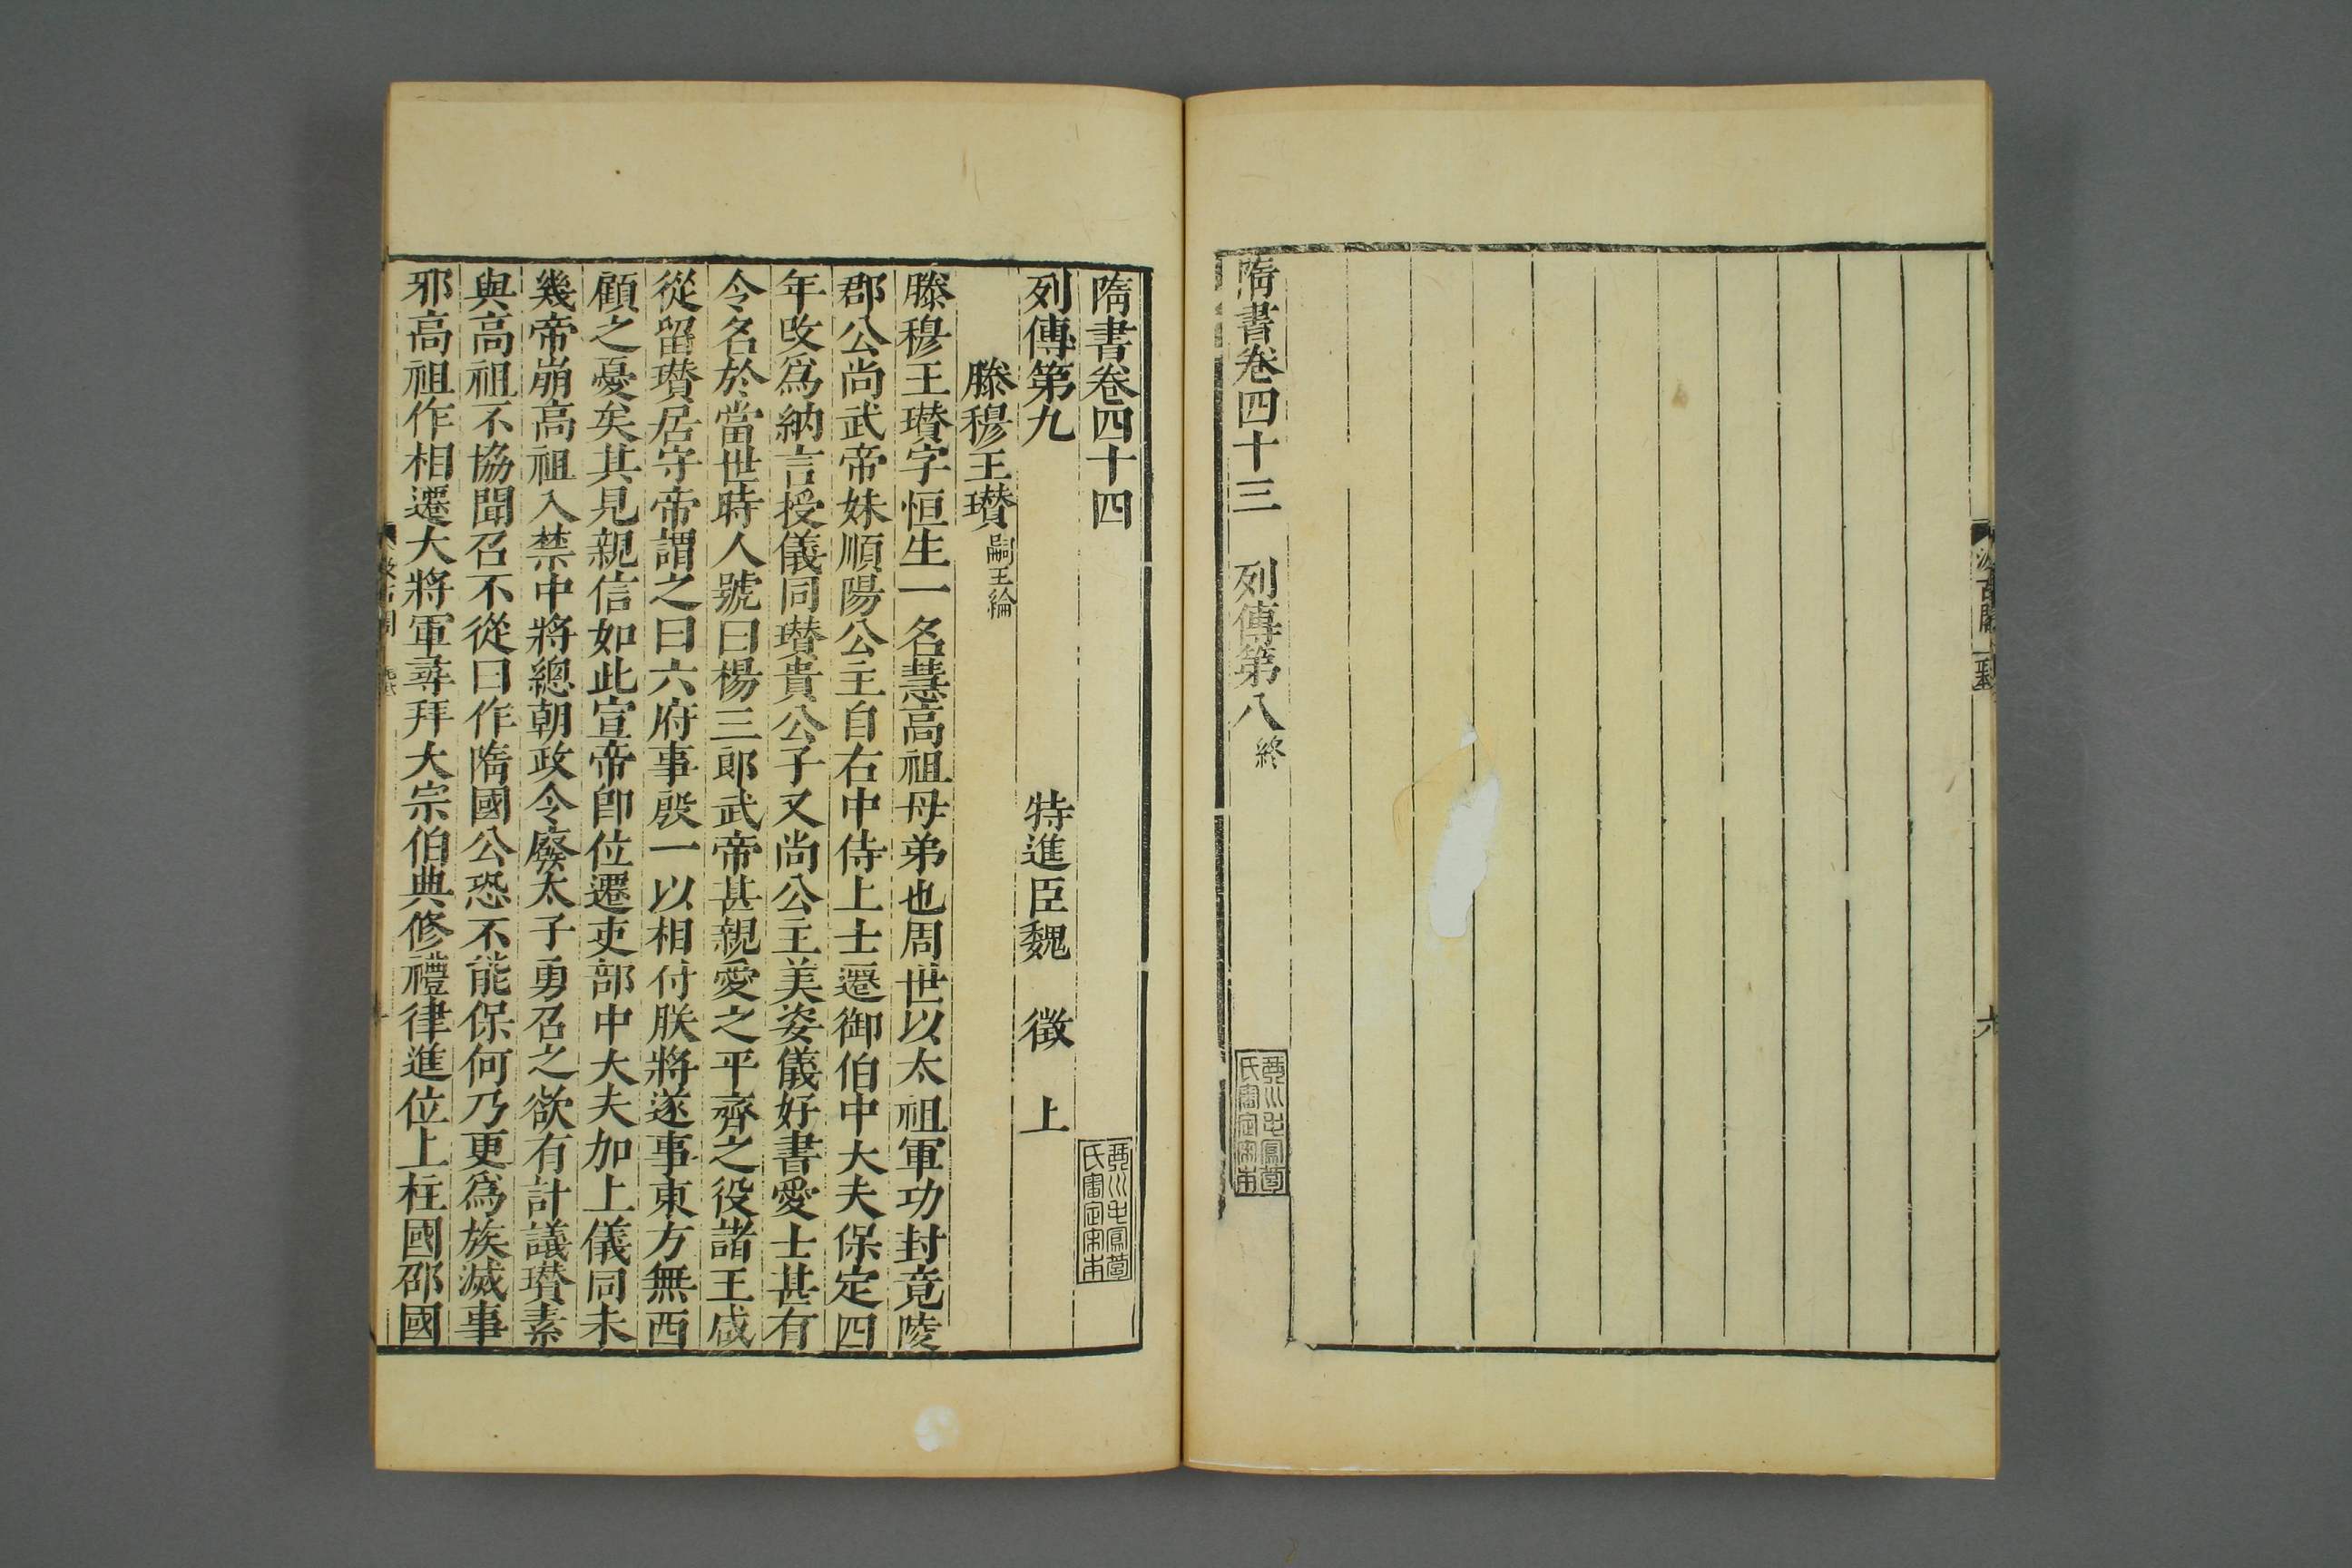 隋書卷四十三　列傳第八終
隋書卷四十四
列傳第九　特進臣魏　徵　上
滕穆王瓚嗣王綸
滕穆王瓚字恒生一名慧高祖母弟也周世以太祖軍功封竟陵
郡公尚武帝妹順陽公主自右中侍上士遷御伯中大夫保定四
年改爲納言授儀同瓚貴公子又尚公主美姿儀好書愛士甚有
令名於當世時人號曰楊三郎武帝甚親愛之平齊之役諸王咸
從留瓚居守帝謂之曰六府事殷一以相付朕將遂事東方無西
顧之憂矣其見親信如此宣帝卽位遷吏部中大夫加上儀同未
幾帝崩高祖入禁中將總朝政令廢太子勇召之欲有計議瓚素
與高祖不協聞召不從曰作隋國公恐不能保何乃更爲族滅事
邪高祖作相遷大將軍尋拜大宗伯典修禮律進位上柱國邵國